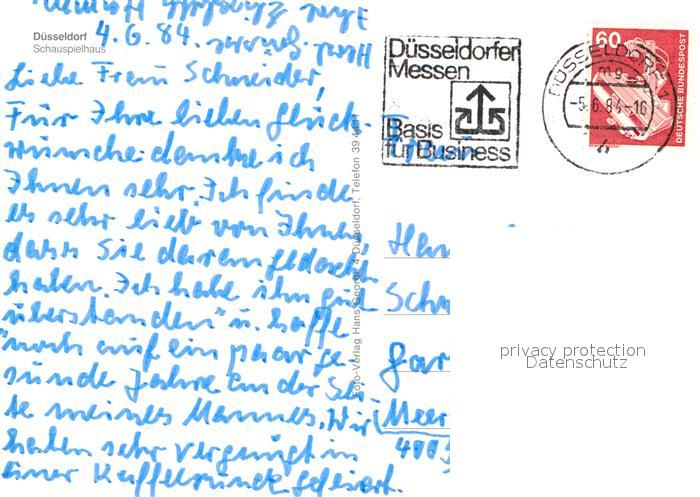 Düsseldorf
Schauspielhaus
4. 6. 84.
Liebe Frau Schneider,
Für Ihre lieben Glück-
wünsche danke ich
Ihnen sehr. Ich finde
es sehr lieb von Ihnen,
dass Sie daran gedacht
haben. Ich habe ihn gut
überstanden" u. hoffe
"noch auf ein paar ge-
sunde Jahre an der Sei-
te meines Mannes. Wir
haben sehr vergnügt in
einer Kaffeerunde gefeiert.
Foto-Verlag Hans Georgi, 4 Düsseldorf, Telefon 39
Düsseldorfer
Messen
Basis
für Business
DÜSSELDORF 1
-5.6.84-16
mg
60
DEUTSCHE BUNDESPOST
Frau
Han
Schn
Gar
Meer
400
privacy protection
Datenschutz